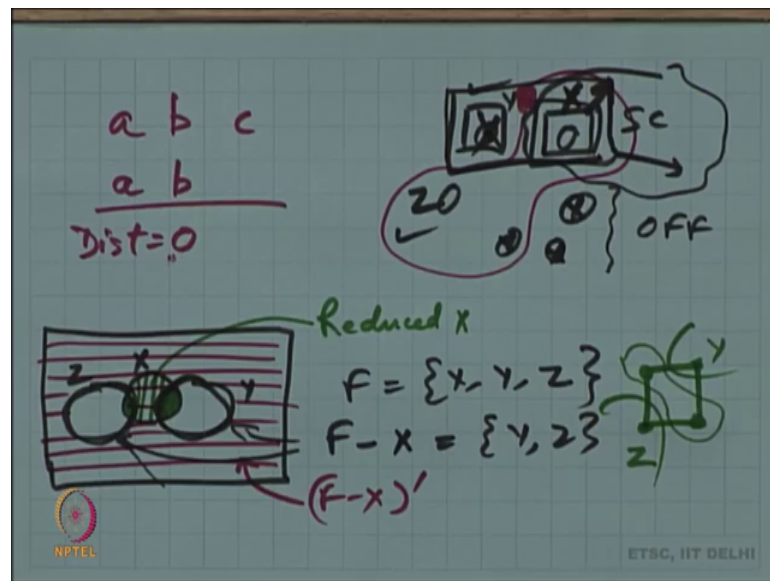 a b c
a b
Dist=0
Y X
0 SC
20
OFF
Reduced X
Z X Y
F = {X, Y, Z}
F - X = {Y, Z}
(F-X)'
Y
Z
NPTEL
ETSC, IIT DELHI